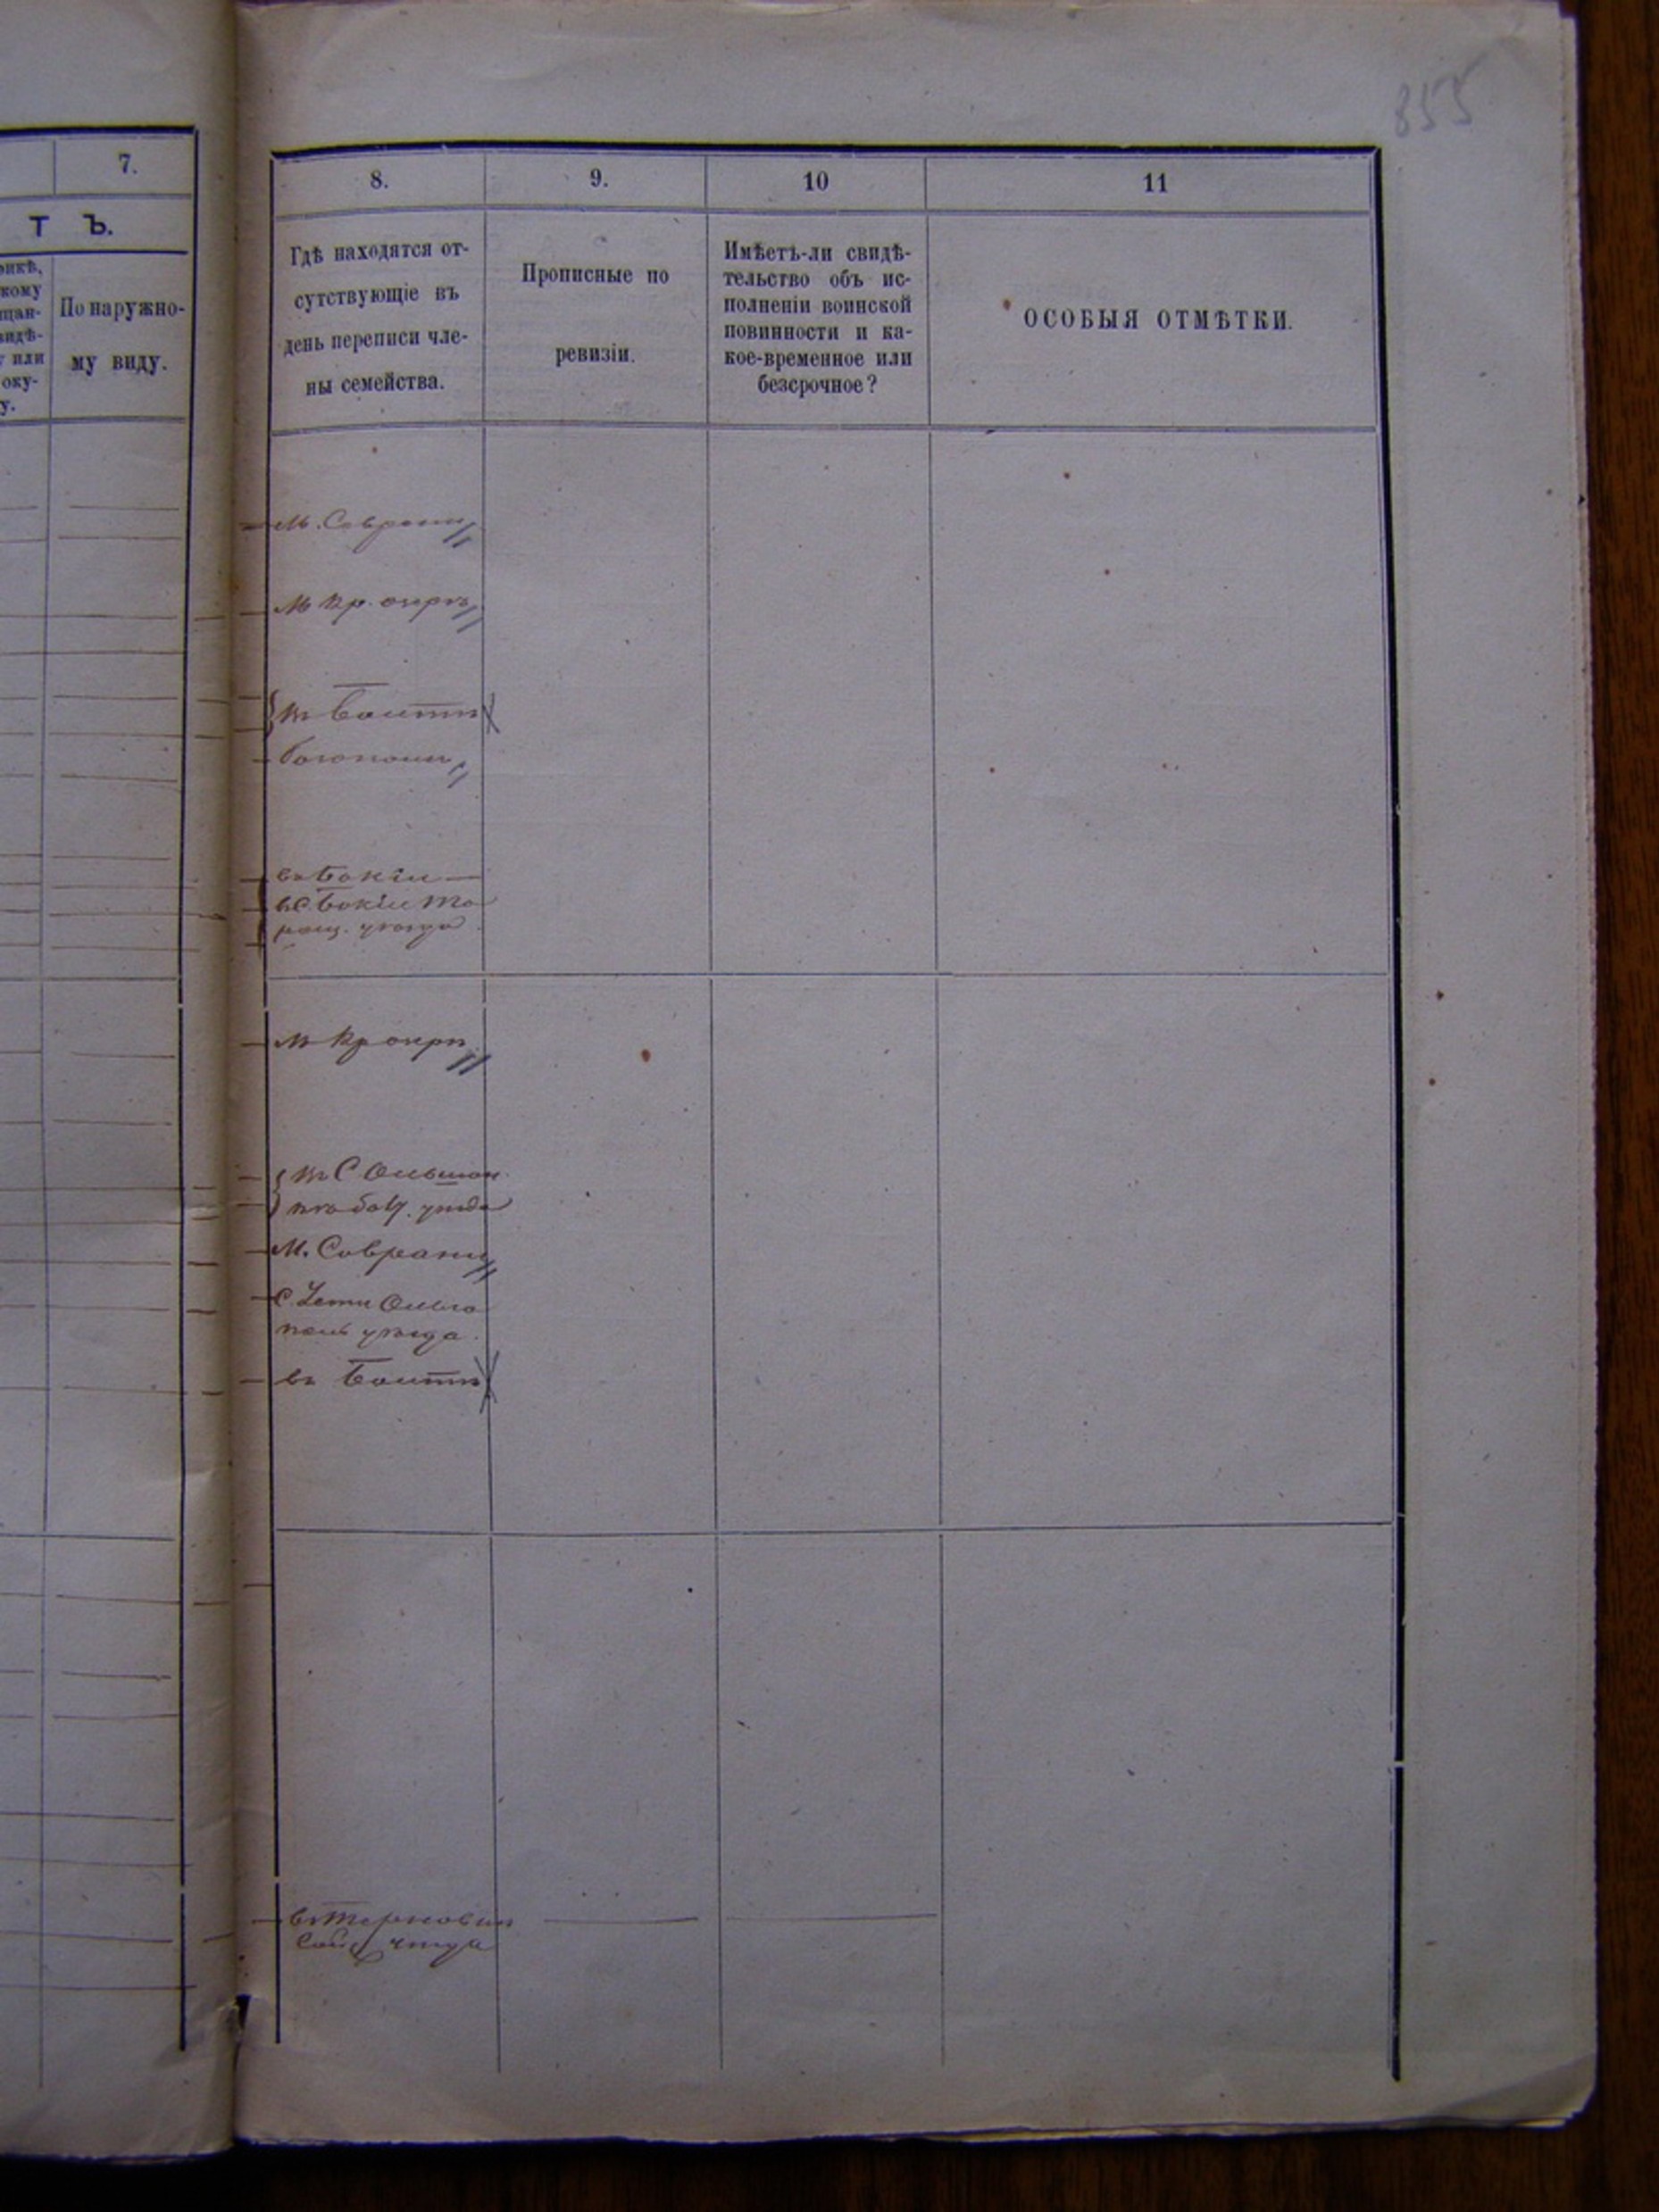 855
7.
Т Ъ.
По наружно-
му виду.
8.
9.
10
11
Гдѣ находятся от-
сутствующіе въ
день переписи чле-
ны семейства.
Прописные по
ревизіи.
Имѣетъ-ли свидѣ-
тельство объ ис-
полненіи воинской
повинности и ка-
кое-временное или
безсрочное?
ОСОБЫЯ ОТМѢТКИ.
М. Саврани
М Кр. окнѣ
въ Балтѣ
Богополи
въ Бокіи
в С. Бокіи Та
ращ. уѣзда
М Кр окнѣ
въ С Ольшан
уѣзда
М. Саврани
Ольго
поль уѣзда.
въ Балтѣ
въ Терновкѣ
уѣзда